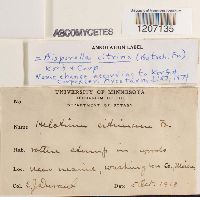 ASCOMYCETES
1207135
ANNOTATION LABEL
= Bisporella citrina (Batsch. Fr.)
Korf & Carp.
Name change according to Korf &
Carpenter, Mycotaxon 1974
UNIVERSITY OF MINNESOTA
DEPARTMENT OF BOTANY
Name: Helotium citrinum Fr.
Hab. rotten stump in woods
Loc. near Washington Co. Minn.
Col. Date 5 Oct. 1918